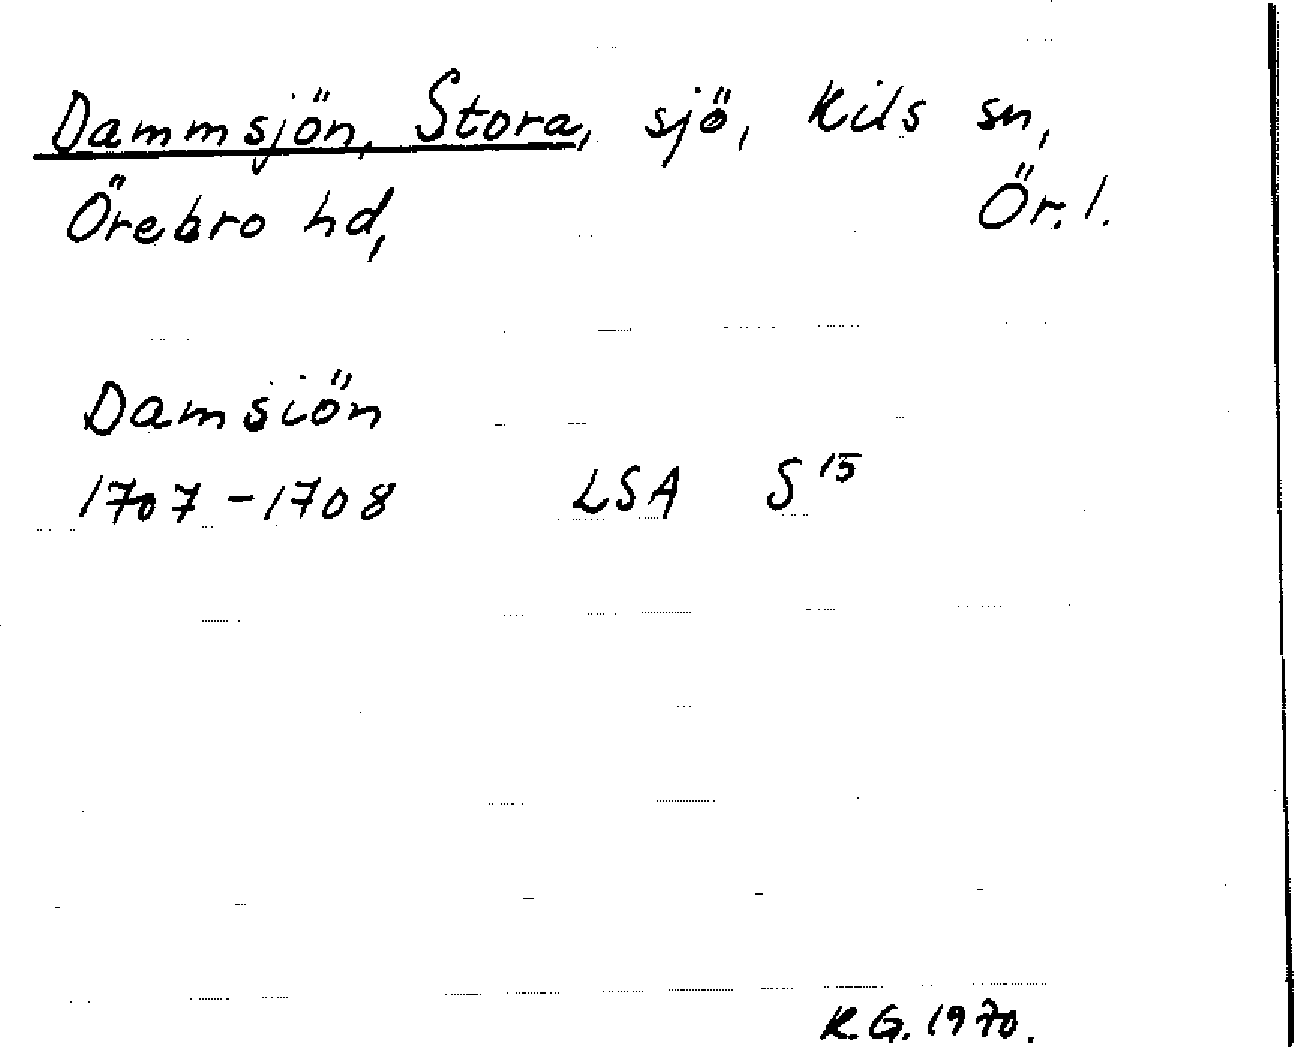 Dammsjön, Stora, sjö, Kils sn,
Örebro hd, Ör. l.
Damsiön
1707-1708 LSA S 15
K.G. 1970.